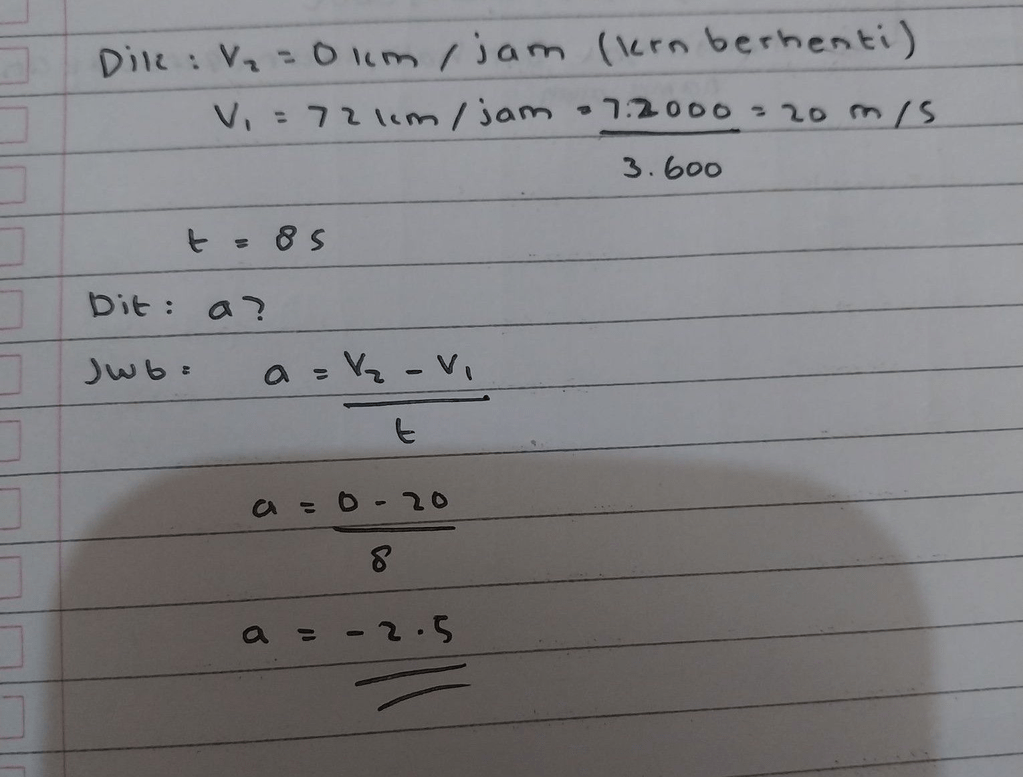 Dik : V₂ = 0 km / jam (krn berhenti)
V₁ = 72 km / jam = 7.2000 = 20 m/s
3.600
t = 8 s
Dit : a?
Jwb : a = V₂ - V₁
t
a = 0 - 20
8
a = - 2.5